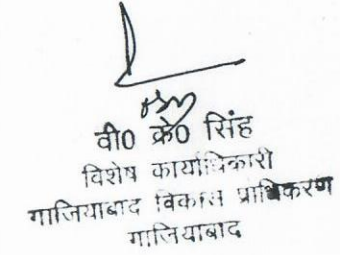 वी0 के0 सिंह
विशेष कार्याधिकारी
गाजियाबाद विकास प्राधिकरण
गाजियाबाद